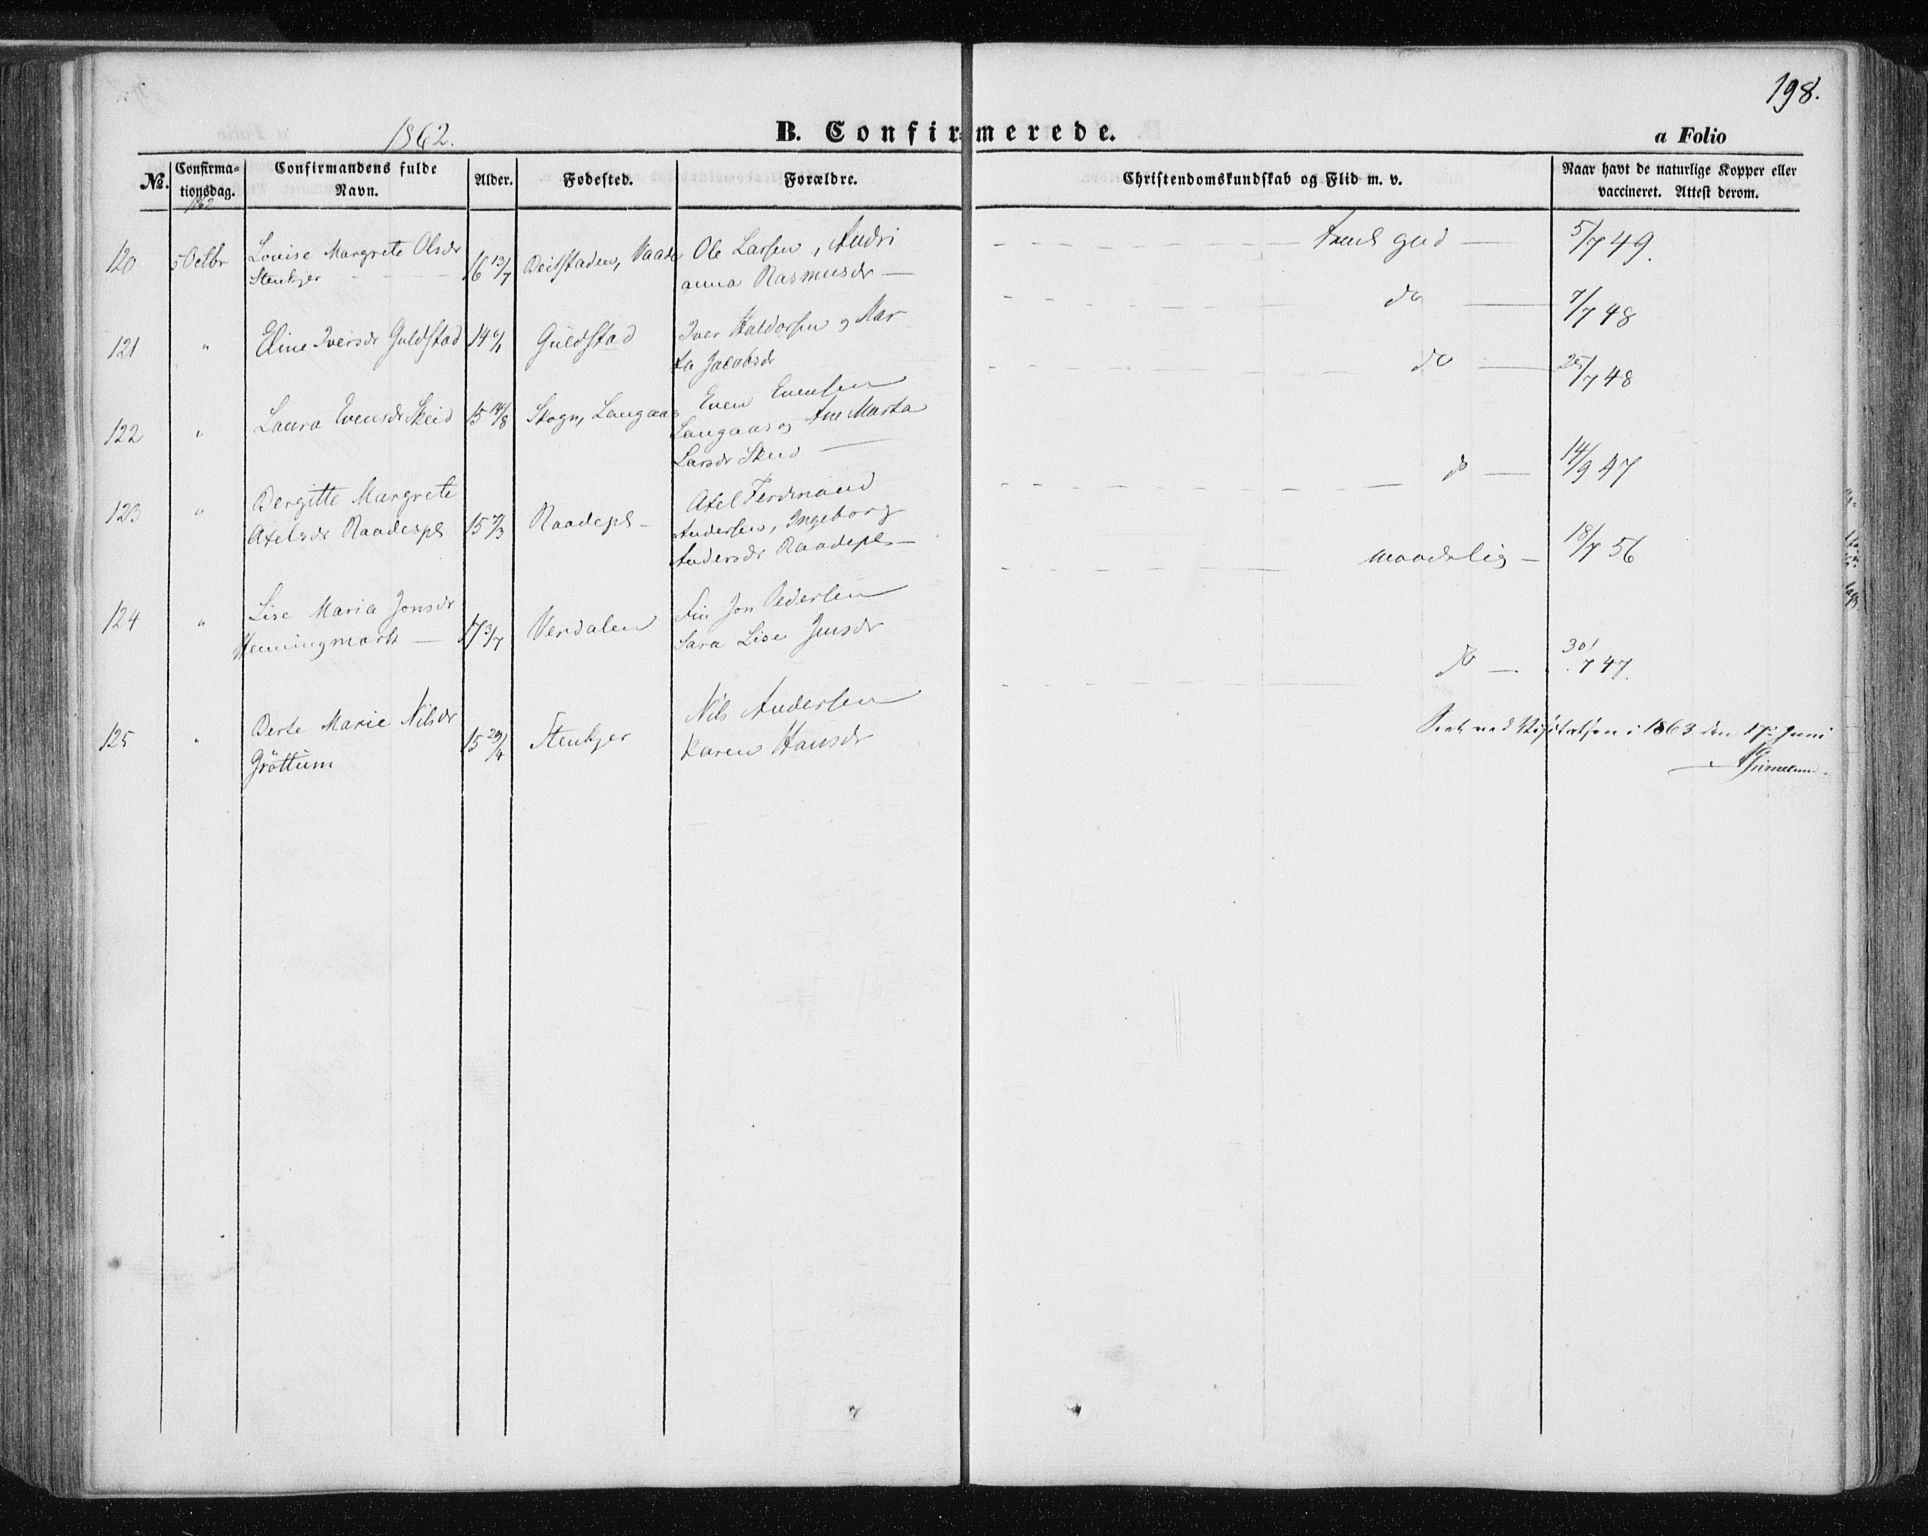 198.
1862.
B. Confirmerede.
a Folio
No.
Confirma-
tionsdag.
1862
Confirmandens fulde
Navn.
Alder.
Fødested.
Forældre.
Christendomskundskab og Flid m. v.
Naar havt de naturlige Kopper eller
vaccineret. Attest derom.
120 5 Octbr Louise Margrete Olsdr
Stenkjer
16 13/7
Beitstaden,
Ole Larsen, Andri
anna Rasmusdr
god
5/7 49.
121 " Eline Iversdr Guldstad
14
Guldstad
Iver Haldorsen og Mar
ta Jacobsdr
do
7/7 48
122 " Laura Evensdr Skeid
15 14/8
Skogn, Langaas
Even Evensen
Langaas og Ane Marta
Larsdr Skeid
do
25/7 48
123 " Bergitte Margrete
Axelsdr Raadespl
15
Raadepl
Axel Ferdinand
Andersen, Ingeborg
Andersdr Raadepl
do
14/9 47
124 " Lise Maria Jonsdr
Henningmark
17 3/7
Verdalen
Jon Pedersen
Sara Lise Jensdr
maadelig
18/7 56
125 " Berte Marie Nilsdr
Grøttum
15 29/4
Stenkjer
Nils Andersen
Karen Hansdr
do
30/7 47.
Seet ved Visitatsen i 1863 den 17 Juni